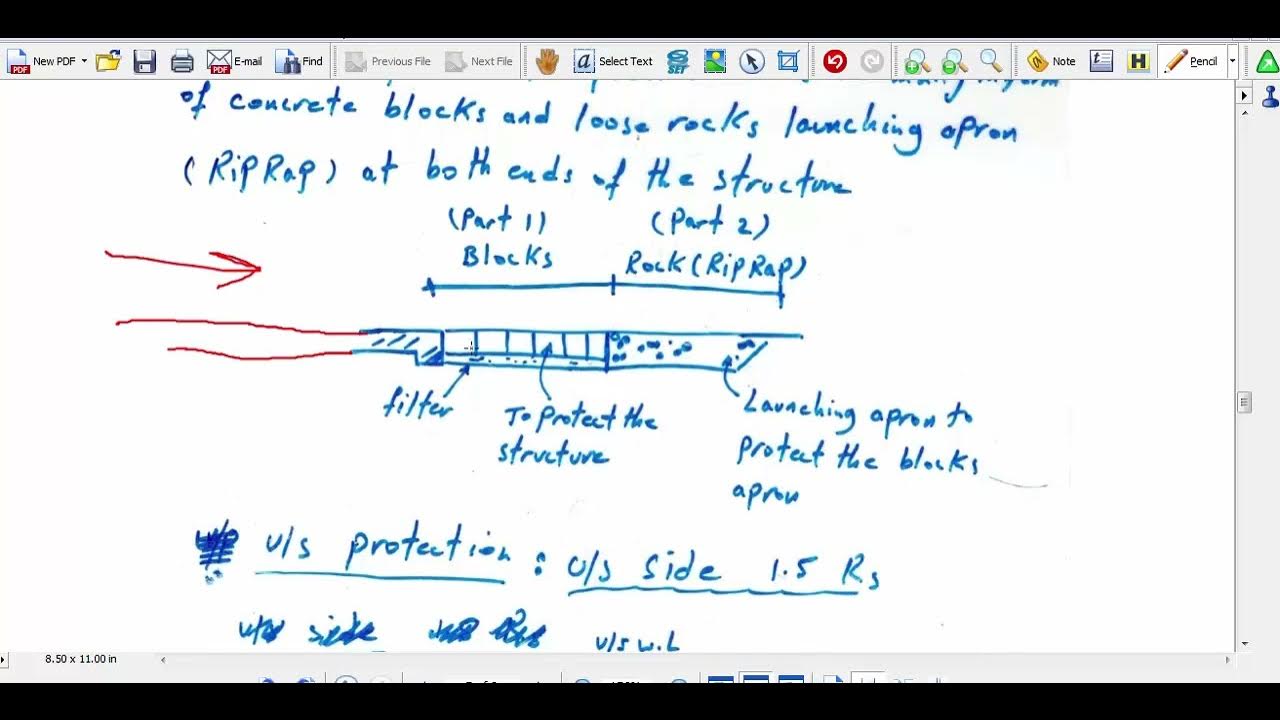 New PDF
E-mail
Find
Previous File
Next File
Select Text
SET
Note
H
Pencil
of concrete blocks and loose rocks launching apron
(RipRap) at both ends of the structure
(Part 1) (Part 2)
Blocks Rock (RipRap)
filter
To protect the structure
Launching apron to
protect the blocks
apron
u/s protection : u/s side 1.5 Rs
u/s w.L
8.50 x 11.00 in